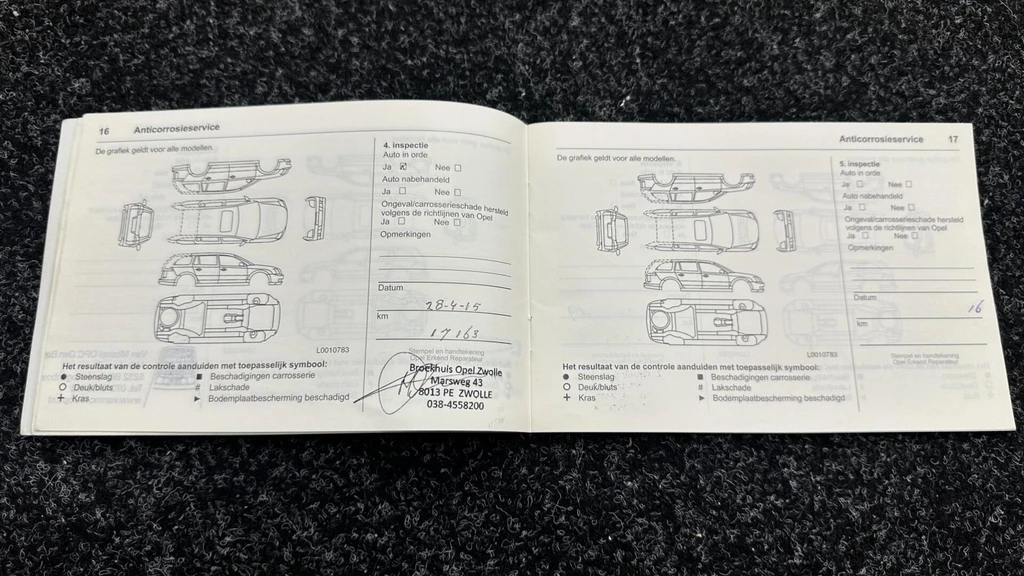 16 Anticorrosieservice
De grafiek geldt voor alle modellen.
L0010783
Het resultaat van de controle aanduiden met toepasselijk symbool:
● Steenslag
○ Deuk/bluts
+ Kras
■ Beschadigingen carrosserie
# Lakschade
► Bodemplaatbescherming beschadigd
4. inspectie
Auto in orde
Ja ☑ Nee ☐
Auto nabehandeld
Ja ☐ Nee ☐
Ongeval/carrosserieschade hersteld
volgens de richtlijnen van Opel
Ja ☐ Nee ☐
Opmerkingen
Datum
28-4-15
km
17163
Stempel en handtekening
Opel Erkend Reparateur
Broekhuis Opel Zwolle
Marsweg 43
8013 PE ZWOLLE
038-4558200
Anticorrosieservice 17
De grafiek geldt voor alle modellen.
L0010783
Het resultaat van de controle aanduiden met toepasselijk symbool:
● Steenslag
○ Deuk/bluts
+ Kras
■ Beschadigingen carrosserie
# Lakschade
► Bodemplaatbescherming beschadigd
5. inspectie
Auto in orde
Ja ☐ Nee ☐
Auto nabehandeld
Ja ☐ Nee ☐
Ongeval/carrosserieschade hersteld
volgens de richtlijnen van Opel
Ja ☐ Nee ☐
Opmerkingen
Datum
16
km
Stempel en handtekening
Opel Erkend Reparateur